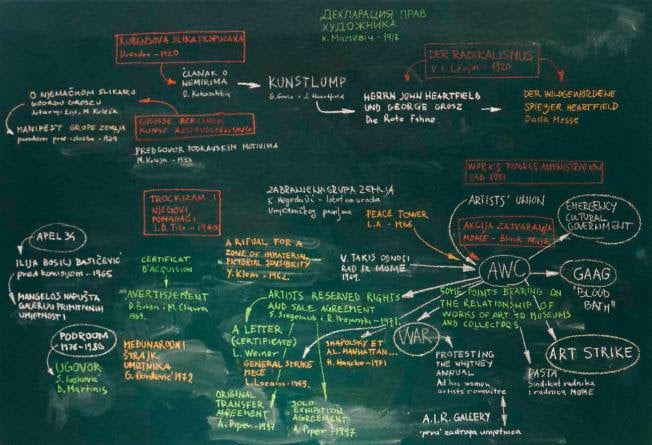 ДЕКЛАРАЦИЯ ПРАВ
ХУДОЖНИКА
К. Малевич - 1918
RUBENSOVA SLIKA PROPUCANA
Dresden - 1920
ČLANAK O
NEMIRIMA
O. Kokoschka
KUNSTLUMP
G. Grosz - J. Heartfield
DER RADIKALISMUS
V. I. Lenjin - 1920
HERRN JOHN HEARTFIELD
UND GEORGE GROSZ
Die Rote Fahne
DER WILDGEWORDENE
SPIEẞER HEARTFIELD
Dada Messe
O NJEMAČKOM SLIKARU
GEORGU GROSZU
M. Krleža
MANIFEST GRUPE ZEMLJA
1929
GROSSE BERLINER
KUNSTAUSSTELLUNG
PREDGOVOR PODRAVSKIM MOTIVIMA
M. Krleža - 1933
TROCKIZAM I
NJEGOVI
POMAGAČI
J. B. Tito - 1940
ZABRANJENA GRUPA ZEMLJA
K. Hegedušić
Umjetničkog paviljona
PEACE TOWER
L.A. - 1966
WORKS PROGRES ADMINISTRATION
SAD 1931
ARTISTS' UNION
EMERGENCY
CULTURAL
GOVERNMENT
AKCIJA ZATVARANJA
MOME - Black Mask
APEL 35
ILIJA BOSILJ BAŠIČEVIĆ
pred komisijom - 1965
MANGELOS NAPUŠTA
GALERIJU PRIMITIVNIH
UMJETNOSTI
CERTIFICAT
D'ACQUISION
AVERTISSEMENT
D. Buren i M. Claura
1969.
A RITUAL FOR A
ZONE OF IMMATERIAL
PICTORIAL SENSIBILITY
Y. Klein - 1962.
V. TAKIS ODNOSI
RAD IZ MOME
1969.
AWC
GAAG
'BLOOD
BATH'
ARTISTS RESERVED RIGHTS
AND SALE AGREEMENT
S. Siegelaub i R. Projansky - 1971.
SOME POINTS BEARING ON
THE RELATIONSHIP OF
WORKS OF ART TO MUSEUMS
AND COLLECTORS
PODROOM
1978-1980
UGOVOR
S. Iveković
D. Martinis
MEĐUNARODNI
ŠTRAJK
UMJETNIKA
G. Đorđević 1979
A LETTER
(CERTIFICATE)
L. Weiner
GENERAL STRIKE
PIECE
L. Lozano - 1969.
SHAPOLSKY ET
AL. MANHATTAN...
H. Haacke - 1971
WAR
PROTESTING
THE WHITNEY
ANNUAL
Ad hoc women
artists' committee
PASTA
Sindikat radnika
i radnica MOME
ART STRIKE
ORIGINAL
TRANSFER
AGREEMENT
A. Piper - 1997
SOLO
EXHIBITION
AGREEMENT
A. Piper - 1997
A.I.R. GALLERY
'prva' zadruga umjetnica